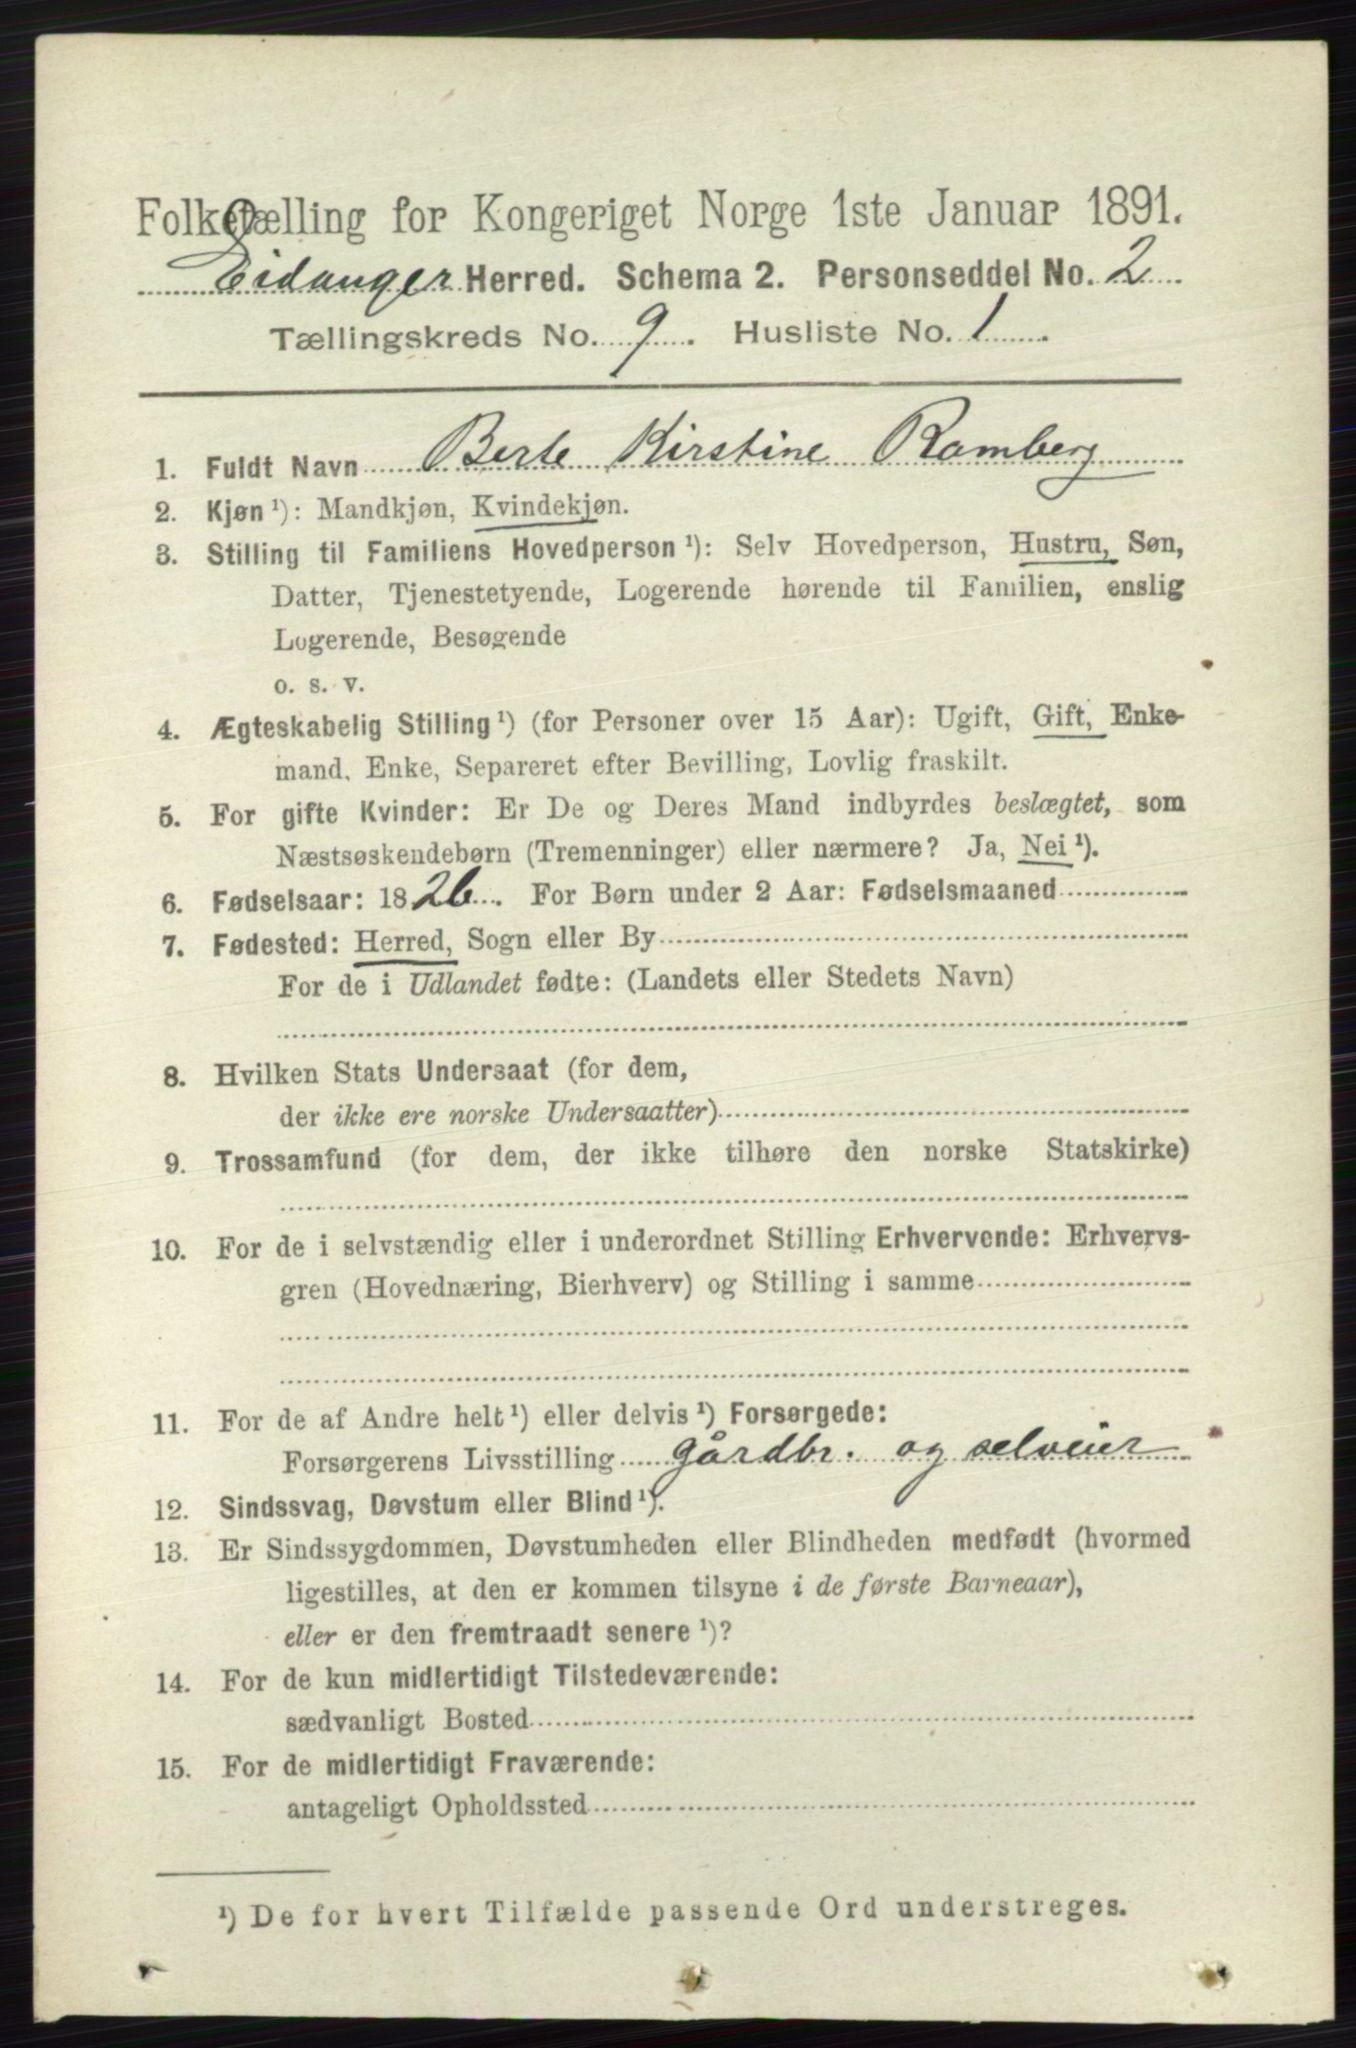 Folketælling for Kongeriget Norge 1ste Januar 1891.
Eidanger Herred. Schema 2. Personseddel No. 2
Tællingskreds No. 9. Husliste No. 1.
1. Fuldt Navn Berte Kirstine Ramberg
2. Kjøn ¹): Mandkjøn, Kvindekjøn.
3. Stilling til Familiens Hovedperson ¹): Selv Hovedperson, Hustru, Søn,
Datter, Tjenestetyende, Logerende hørende til Familien, enslig
Logerende, Besøgende
o. s. v.
4. Ægteskabelig Stilling ¹) (for Personer over 15 Aar): Ugift, Gift, Enke-
mand, Enke, Separeret efter Bevilling, Lovlig fraskilt.
5. For gifte Kvinder: Er De og Deres Mand indbyrdes beslægtet, som
Næstsøskendebørn (Tremenninger) eller nærmere? Ja, Nei ¹).
6. Fødselsaar: 1826. For Børn under 2 Aar: Fødselsmaaned
7. Fødested: Herred, Sogn eller By
For de i Udlandet fødte: (Landets eller Stedets Navn)
8. Hvilken Stats Undersaat (for dem,
der ikke ere norske Undersaatter)
9. Trossamfund (for dem, der ikke tilhøre den norske Statskirke)
10. For de i selvstændig eller i underordnet Stilling Erhvervende: Erhvervs-
gren (Hovednæring, Bierhverv) og Stilling i samme
11. For de af Andre helt ¹) eller delvis ¹) Forsørgede:
Forsørgerens Livsstilling gårdbr. og selveier
12. Sindssvag, Døvstum eller Blind ¹).
13. Er Sindssygdommen, Døvstumheden eller Blindheden medfødt (hvormed
ligestilles, at den er kommen tilsyne i de første Barneaar),
eller er den fremtraadt senere ¹)?
14. For de kun midlertidigt Tilstedeværende:
sædvanligt Bosted
15. For de midlertidigt Fraværende:
antageligt Opholdssted
¹) De for hvert Tilfælde passende Ord understreges.